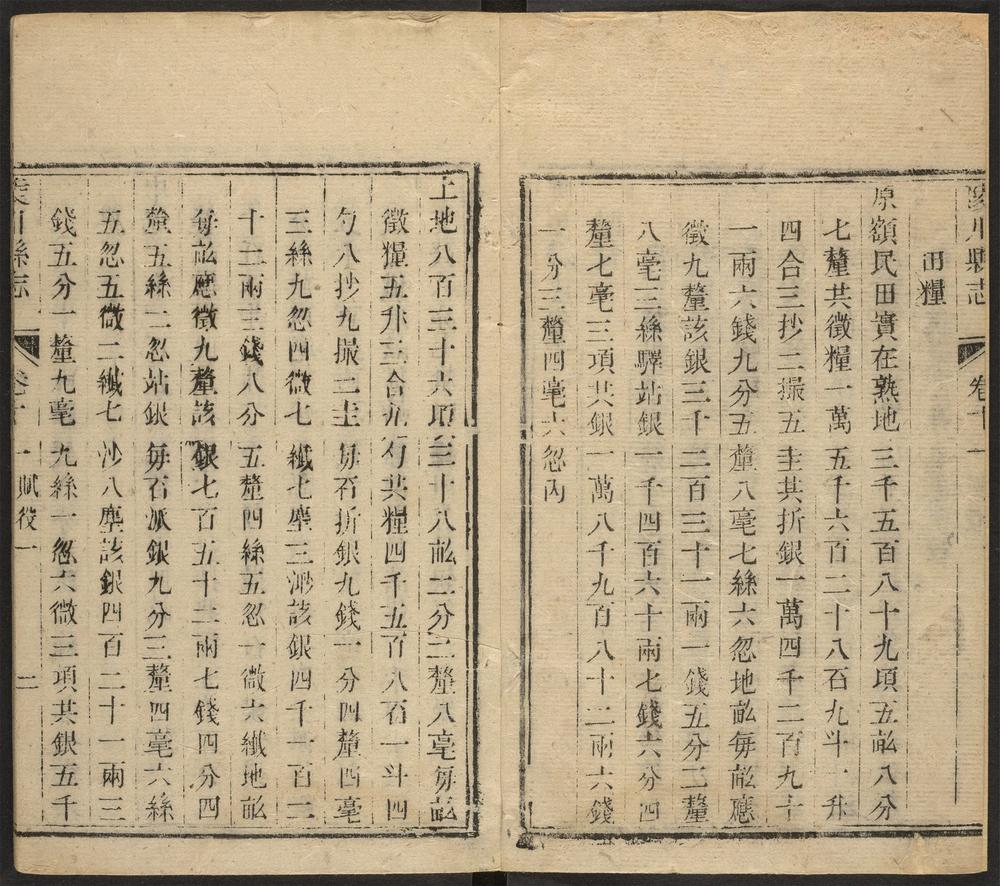 川縣志 卷十一
田糧
原額民田實在熟地三千五百八十九頃五畝八分
七釐共徵糧一萬五千六百二十八石九斗一升
四合三抄二撮五圭共折銀一萬四千二百九十
一兩六錢九分五釐八毫七絲六忽地畝每畝應
徵九釐該銀三千二百三十一兩一錢五分二釐
八毫三絲驛站銀一千四百六十兩七錢六分四
釐七毫三項共銀一萬八千九百八十二兩六錢
一分三釐四毫六忽內
上地八百三十六頃三十八畝二分二釐八毫每畝
徵糧五升三合九勺共糧四千五百八石一斗四
勺八抄九撮二圭每石折銀九錢一分四釐四毫
三絲九忽四微七纖七塵三渺該銀四千一百二
十二兩三錢八分五釐四絲五忽一微六纖地畝
每畝應徵九釐該銀七百五十二兩七錢四分四
釐五絲二忽站銀每石派銀九分三釐四毫六絲
五忽五微二纖七沙八塵該銀四百二十一兩三
錢五分一釐九毫九絲一忽六微三項共銀五千
川縣志 卷十一 賦役一 二